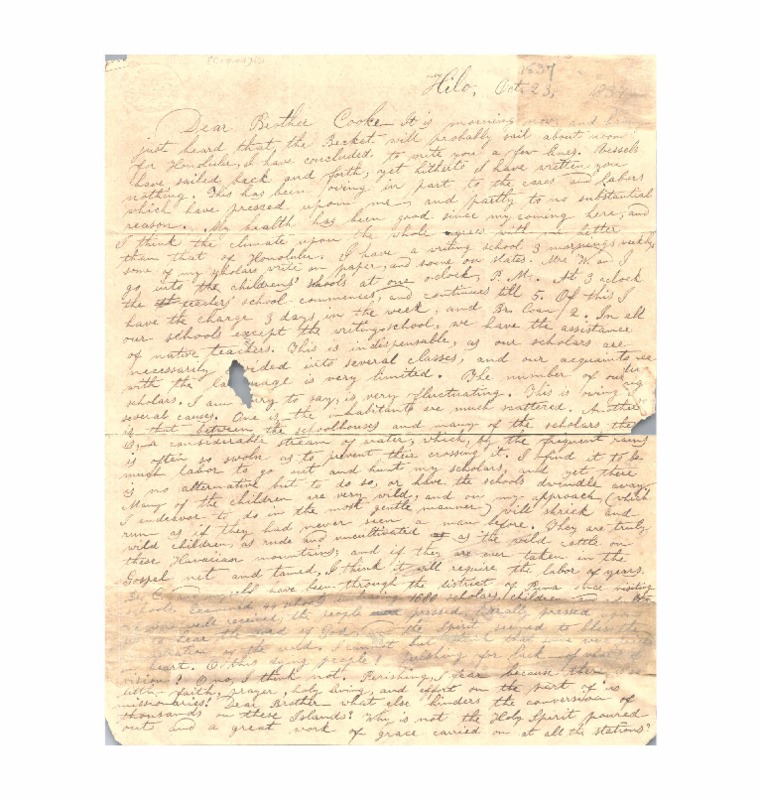 1837
Hilo, Oct. 23,
Dear Brother Cooke— It is morning now and having
just heard that the Becket will probably sail about noon
for Honolulu, I have concluded to write you a few lines. Vessels
have sailed back and forth, yet hitherto I have written you
nothing. This has been owing in part to the cares and labors
which have pressed upon me and partly to no substantial
reason. My health has been good since my coming here, and
I think the climate upon the whole agrees with me better
than that of Honolulu. I have a writing school 3 mornings weekly,
some of my scholars write on paper, and some on slates. Mrs W. and I
go into the childrens' schools at one oclock, P. M. At 3 oclock
the teachers' school commences, and continues till 5. Of this I
have the charge 3 days in the week, and Br. Coan 2. In all
our schools except the writing school, we have the assistance
of native teachers. This is indispensable, as our scholars are
necessarily divided into several classes, and our acquaintance
with the language is very limited. The number of our
scholars, I am sorry to say, is very fluctuating. This is owing to
several causes. One is the inhabitants are much scattered. Another
is that between the schoolhouses and many of the scholars there
is a considerable stream of water, which, by the frequent rains
is often so swoln as to prevent their crossing it. I find it to be
much labor to go out and hunt my scholars, and yet there
is no alternative but to do so, or have the schools dwindle away.
Many of the children are very wild, and on my approach (which
I endeavor to do in the most gentle manner) will shriek and
run as if they had never seen a man before. They are truly
wild children, as rude and uncultivated as the wild cattle on
these Hawaiian mountains; and if they are ever taken in the
Gospel net and tamed, I think it will require the labor of years.
have been through the district of Puna visiting
schools. Examined schools 1600 scholars, children and
well received, the people pressed, literally pressed
to hear the word of God, the Spirit seemed to bless the
of the word. I but that some were
heart. O, this dying people! Perishing for lack of
vision? O no, I think not. Perishing, I fear because there is so
little faith, prayer, holy living, and effort on the part of us
missionaries. Dear Brother what else hinders the conversion of
thousands on these Islands? Why is not the Holy Spirit poured
out and a great work of grace carried on at all the stations?